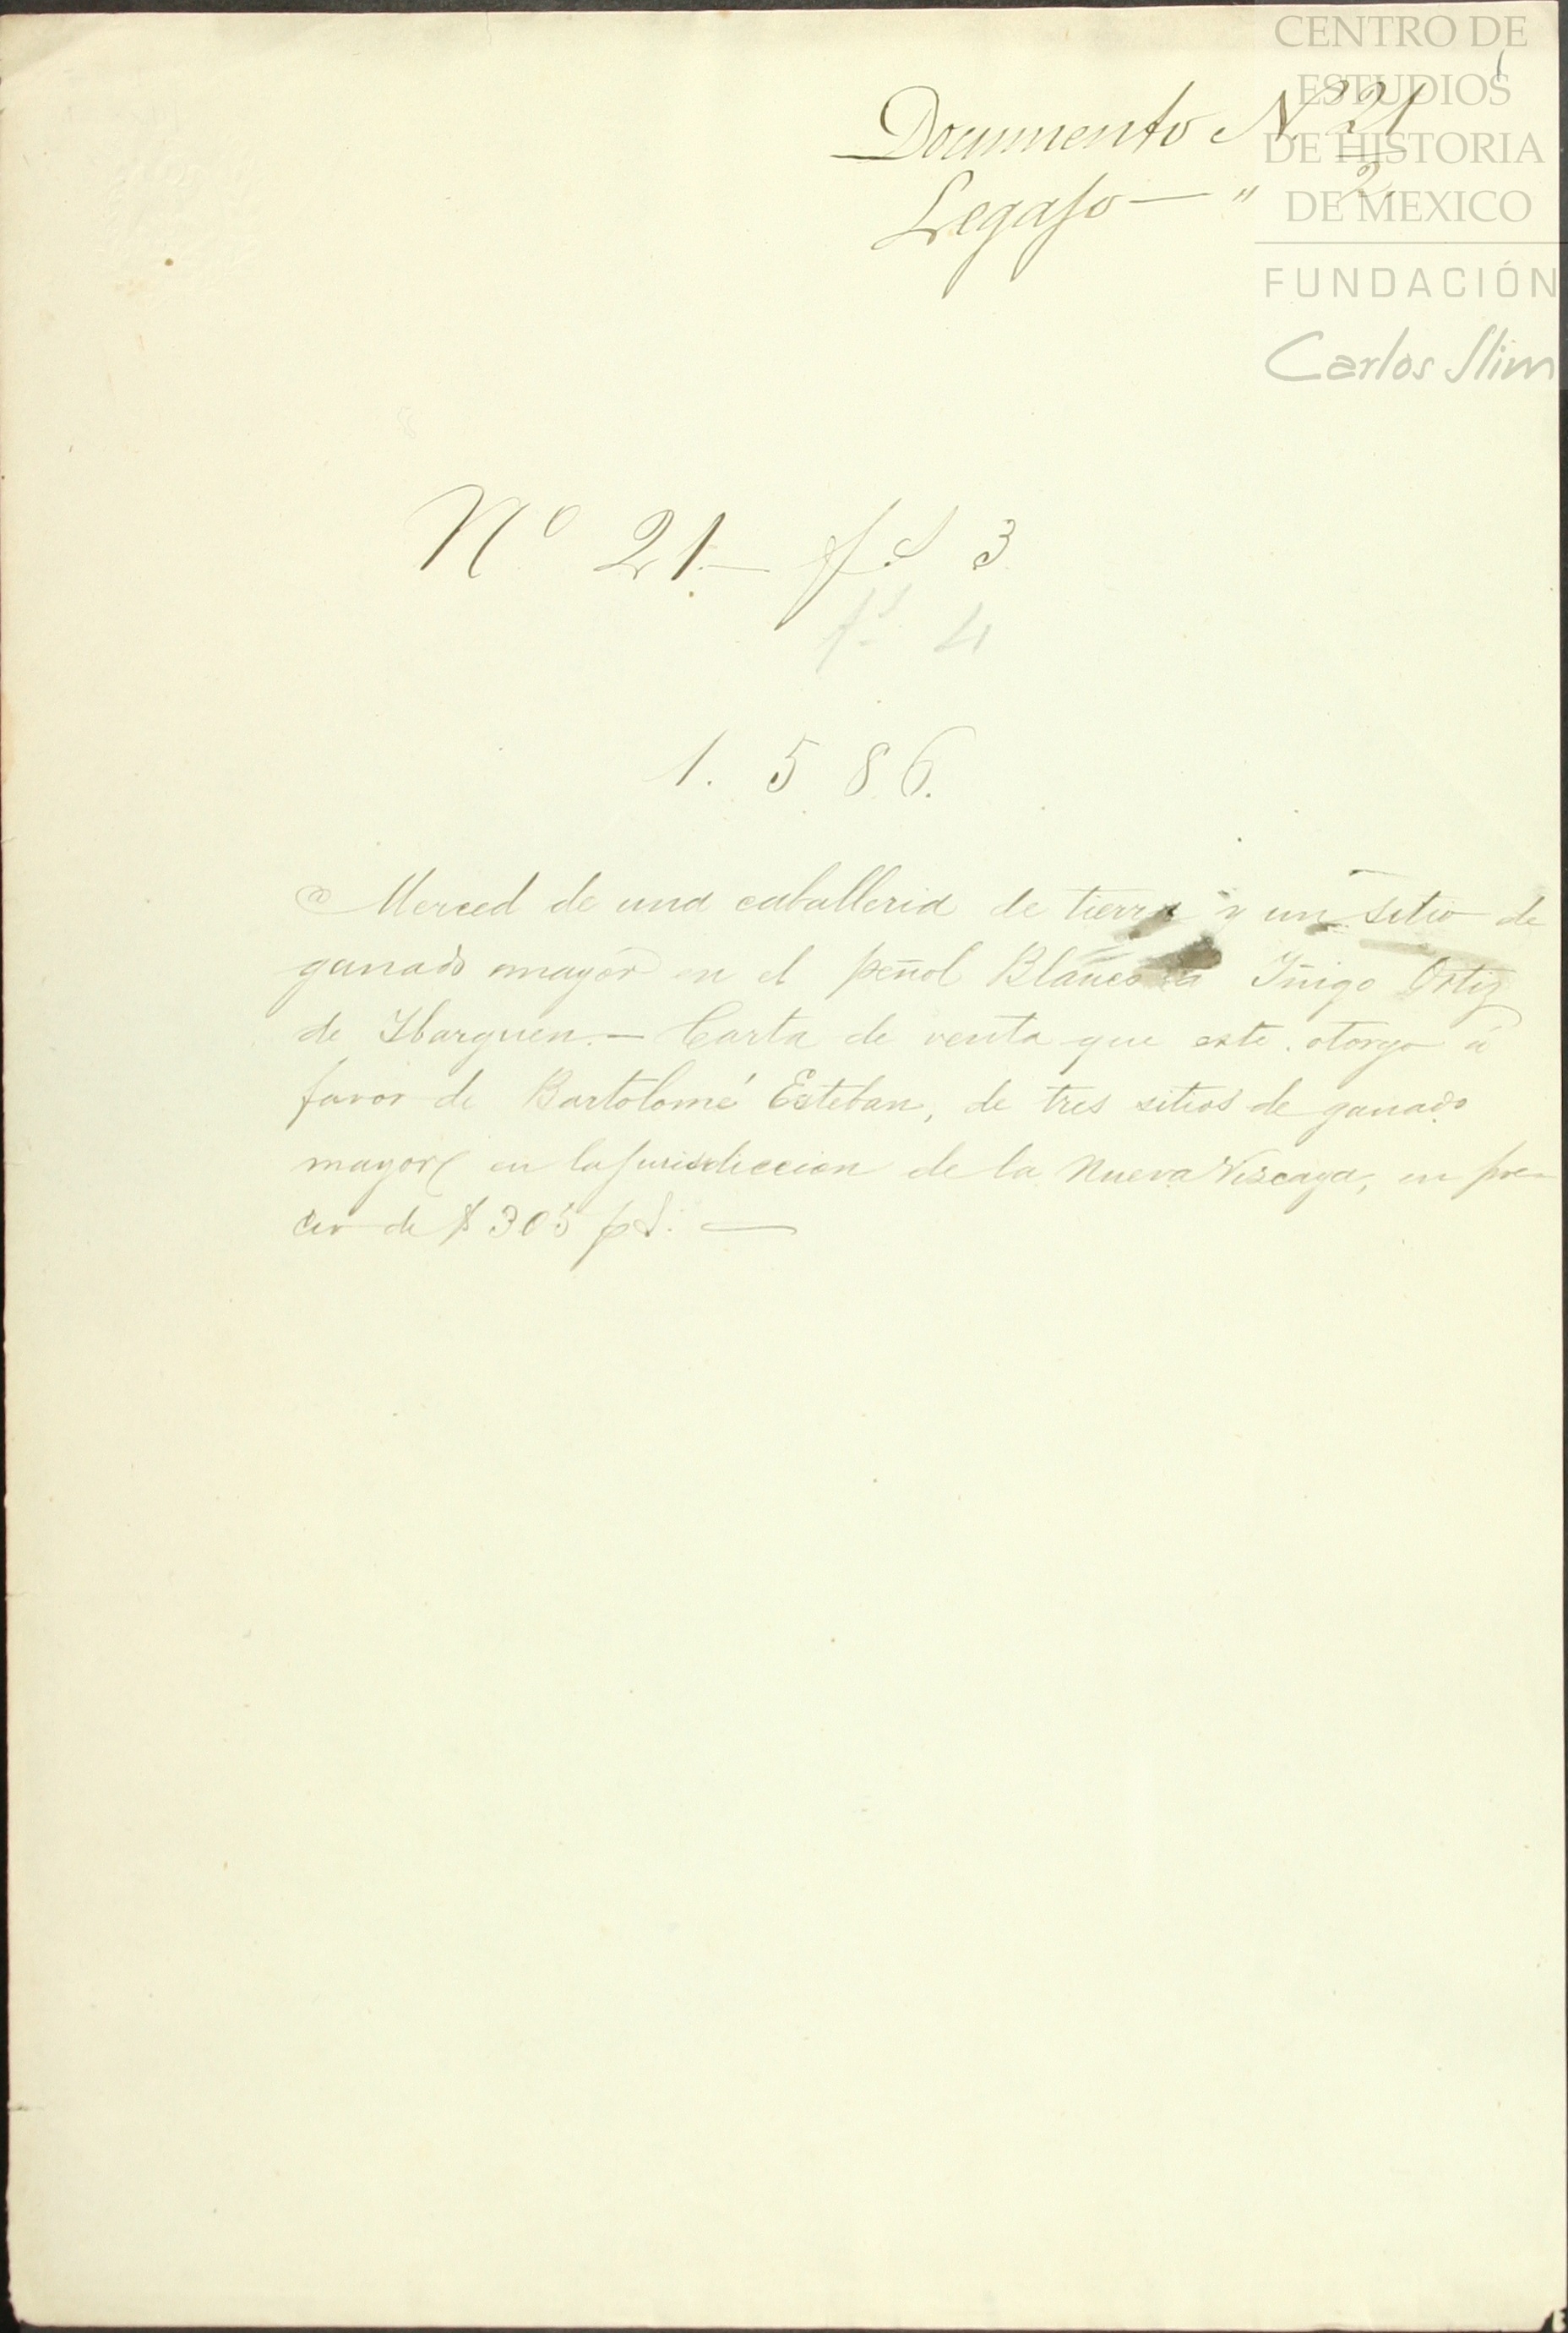 CENTRO DE
ESTUDIOS
DE HISTORIA
DE MEXICO
FUNDACIÓN
Carlos Slim
Documento N. 21
Legajo — " 2
Nº 21.— f.s 3
f.s 4
1. 5 8 6.
Merced de una caballeria de tierra y un sitio de
ganado mayor en el peñol Blanco a Iñigo Ortiz
de Ibarguen.— Carta de venta que este otorgo á
favor de Bartolomé Esteban, de tres sitios de ganado
mayor en la jurisdiccion de la Nueva Viscaya, en pre-
cio de $ 305 ps. —